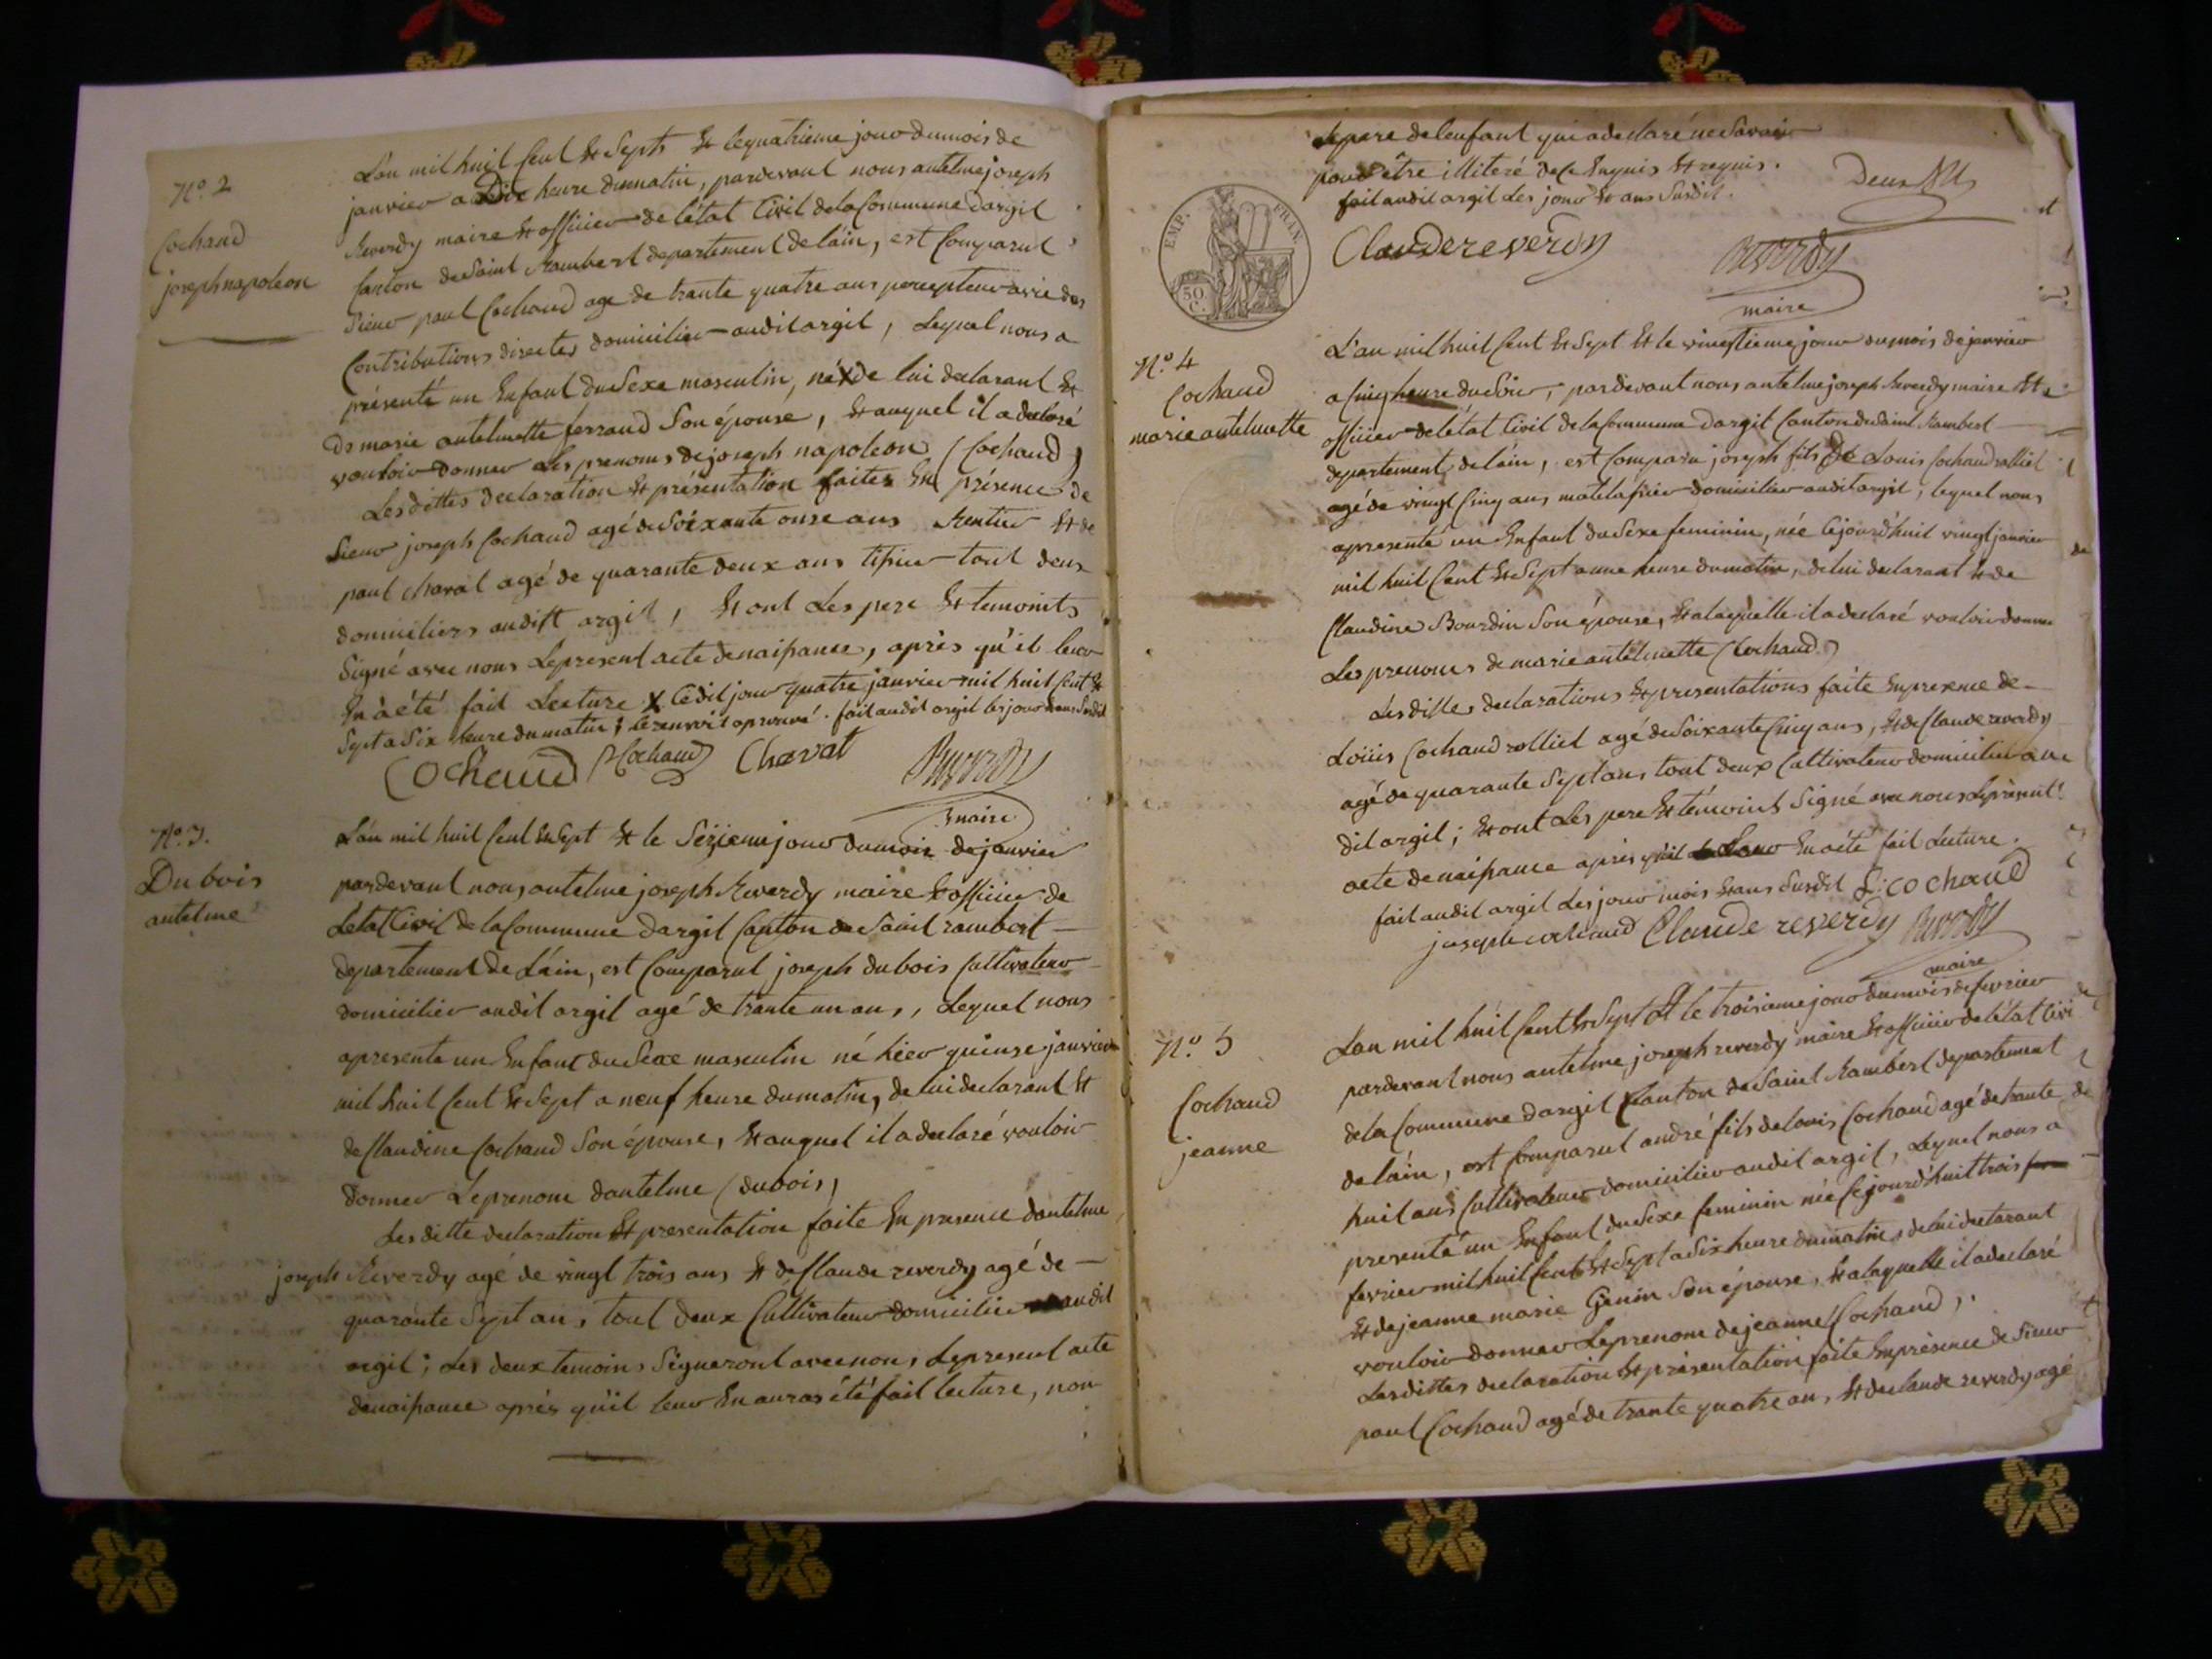 N.º 2
Cochand
joseph napoleon
L'an mil huit Cent & Septs & le quatrieme jour du mois de
janvier a Dix heure du matin, pardevant nous antelme joseph
Reverdy maire & officier de l'état Civil de la Commune d'argil
Canton de Saint Rambert departement de lain, est Comparut
Sieur paul Cochand age de trante quatre ans percepteur des
Contributions directes domicilier audit argil, Lequel nous a
présenté un Enfant du Sexe masculin, né X de lui declarant &
De marie antelmette ferrand Son épouse, & auquel il a declaré
vouloir donner Les prenoms de joseph napoleon (Cochand)
Les dittes declaration & présentation faites En présence de
Sieur joseph Cochand agé de Soixante onse ans Rentier & de
paul chavat agé de quarante deux ans tisier tout deux
domiciliers audit argil, & ont Les pere & temoints
Signé avec nous Le present acte de naissance, après qu'il leur
En à été fait Lecture X Cedit jour quatre janvier mil huit Cent &
Sept a Six heure du matin; le renvoit aprouvé. fait audit argil les jour & ans Susdit
Cochaud P Cochaud Chavat Reverdy
maire
N.º 3.
Dubois
antelme
L'an mil huit Cent & Sept & le Seizieme jour du mois de janvier
pardevant nous antelme joseph Reverdy maire & officier de
L'état Civil de la Commune d'argil Canton de Saint rambert
departement de L'ain, est Comparut joseph dubois Cultivateur
domicilier audit argil agé de trante un ans, Lequel nous
a presente un Enfant du Sexe masculin né hier quinse janvier
mil huit Cent & Sept a neuf heure du matin, de lui declarant &
de Claudine Cochand Son épouse, & auquel il a declaré vouloir
donner Le prenom d'antelme (dubois)
Les ditte declaration & presentation faite En presence d'antelme
joseph Reverdy agé de vingt trois ans & de Claude reverdy agé de
quarante Sept ans, tout deux Cultivateur domicilier audit
argil; Les deux temoins Signeront avec nous Le present acte
de naissance après qu'il leur En auras été fait lecture, non
Le pere de l'enfant qui a declaré ne Savoir
pour être illiteré de ce Enquis & requis.
fait audit argil Les jour & ans Susdit.
EMP. FRAN.
50 C.
Claude reverdy Reverdy
maire
N.º 4
Cochand
marie antelmette
L'an mil huit Cent & Sept & le vingtieme jour du mois de janvier
a Cinq heure du Soir, pardevant nous antelme joseph Reverdy maire &
officier de l'état Civil de la Commune d'argil Canton de Saint Rambert
departement de lain, est Comparu joseph fils de Louis Cochand rolliet
agé de vingt Cinq ans matelassier domicilier audit argil, lequel nous
a presenté un Enfant du Sexe feminin, née Cejourd'huit vingt janvier
mil huit Cent & Sept a une heure du matin, de lui declarant & de
Claudine Bourdin Son épouse, & a laquelle il a declaré vouloir donner
Les prenoms de marie antelmette (Cochand)
Les dittes declarations & presentations faite En presence de
Loüis Cochand rolliet agé de Soixante Cinq ans, & de Claude reverdy
agé de quarante Sept ans tout deux Cultivateur domicilier au
dit argil; & ont Les pere & témoints Signé avec nous Le présent
acte de naissance après qu'il Leur En a été fait Lecture.
fait audit argil Les jour mois & ans Susdit L: cochaud
joseph cochaud Claude reverdy Reverdy
maire
N.º 5
Cochand
jeanne
L'an mil huit Cent & Sept & le troisieme jour du mois de fevrier
pardevant nous antelme joseph reverdy maire & officier de l'état Civil
de la Commune d'argil Canton de Saint Rambert departement
de l'ain, est Comparut andré fils de louis Cochand agé de trante
huit ans Cultivateur domicilier audit argil, Lequel nous a
presenté un Enfant du Sexe feminin née Cejourd'huit trois
fevrier mil huit Cent & Sept a Six heure du matin, de lui declarant
& de jeanne marie Genin Son épouse, & a laquelle il a declaré
vouloir donner Le prenom de jeanne (Cochand),
Les dittes declaration & présentation faite En présence de Sieur
paul Cochand agé de trante quatre ans, & de claude reverdy agé